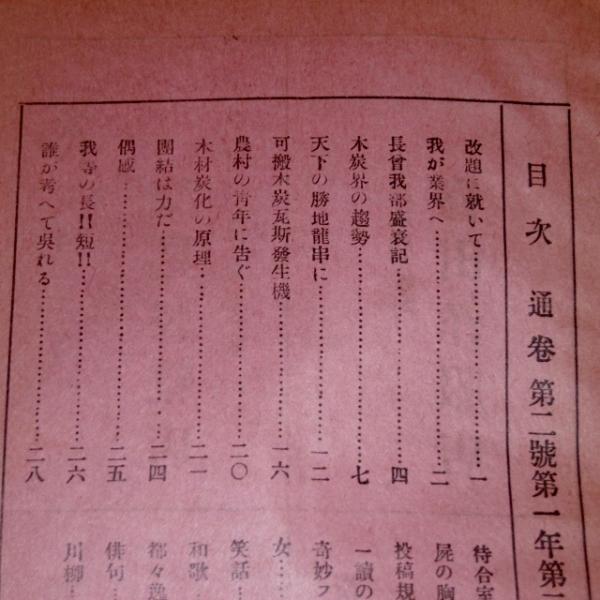 目次　通卷第二號第一年第二
改題に就いて……一
我が業界へ……二
長曾我部盛衰記……四
木炭界の趨勢……七
天下の勝地龍串に……一二
可搬木炭瓦斯發生機……一六
農村の青年に吿ぐ……二〇
木材炭化の原理……二一
團結は力だ……二四
偶感……二五
我等の長!!短!!……二六
誰が考へて吳れる……二八
待合室
屍の胸
投稿規
一讀の
奇妙
女……
笑話…
和歌…
都々逸
俳句…
川柳…